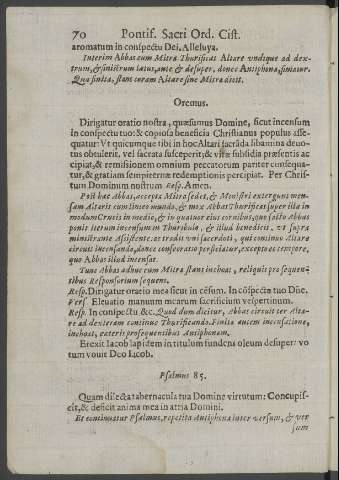 70 Pontif. Sacri Ord. Cist.
aromatum in conspectu Dei, Alleluya.
Interim Abbas cum Mitra Thurificat Altare vndique ad dex-
trum, & sinistrum latus, ante & desuper, donec Antiphona, finiatur.
Qua finita, stans coram Altare sine Mitra dicit.
Oremus.
Dirigatur oratio nostra, quæsumus Domine, sicut incensum
in conspectu tuo: & copiosa beneficia Christianus populus asse-
quatur: Vt quicumque tibi in hoc Altari sacrãda libamina deuo-
tus obtulerit, vel sacrata susceperit; & vitæ subsidia præsentis ac
cipiat, & remissionem omnium peccatorum pariter consequa-
tur, & gratiam sempiternæ redemptionis percipiat. Per Chris-
tum Dominum nostrum Resp. Amen.
Post hac Abbas, accepta Mitra sedet, & Ministri extergunt men-
sam Altaris cum linteo mundo, & mox Abbas Thurificat super illa in
modum Crucis in medio, & in quatuor eius cornibus, quo facto Abbas
ponit iterum incensum in Thuribulo, & illud benedicit. vt supra
ministrante Assistente. et tradit vni sacerdoti, qui continuo Altare
circuit incensando, donec consecratio perficiatur, excepto eo tempore,
quo Abbas illud incensat.
Tunc Abbas adhuc cum Mitra stans incheat, reliquis pro sequen-
tibus Responsorium sequens.
Resp. Dirigatur oratio mea sicut in cẽsum. In cõspectu tuo Dñe.
Vers Eleuatio manuum mearum sacrificium vespertinum.
Resp. In conspectu &c. Quod dum dicitur, Abbas circuit ter Alta-
re ad dexteram continuo Thurificando. Finita autem incensatione,
inchoat, cæteris prosequentibus Antiphonam.
Erexit Iacob lapidem in titulum fundens oleum desuper: vo
tum vouit Deo Iacob.
Psalmus 85.
Quam dilecta tabernacula tua Domine virtutum: Concupis-
cit, & deficit anima mea in atria Domini.
Et continuatur Psalmus, repetita Antiphona inter versum, & ver
sum